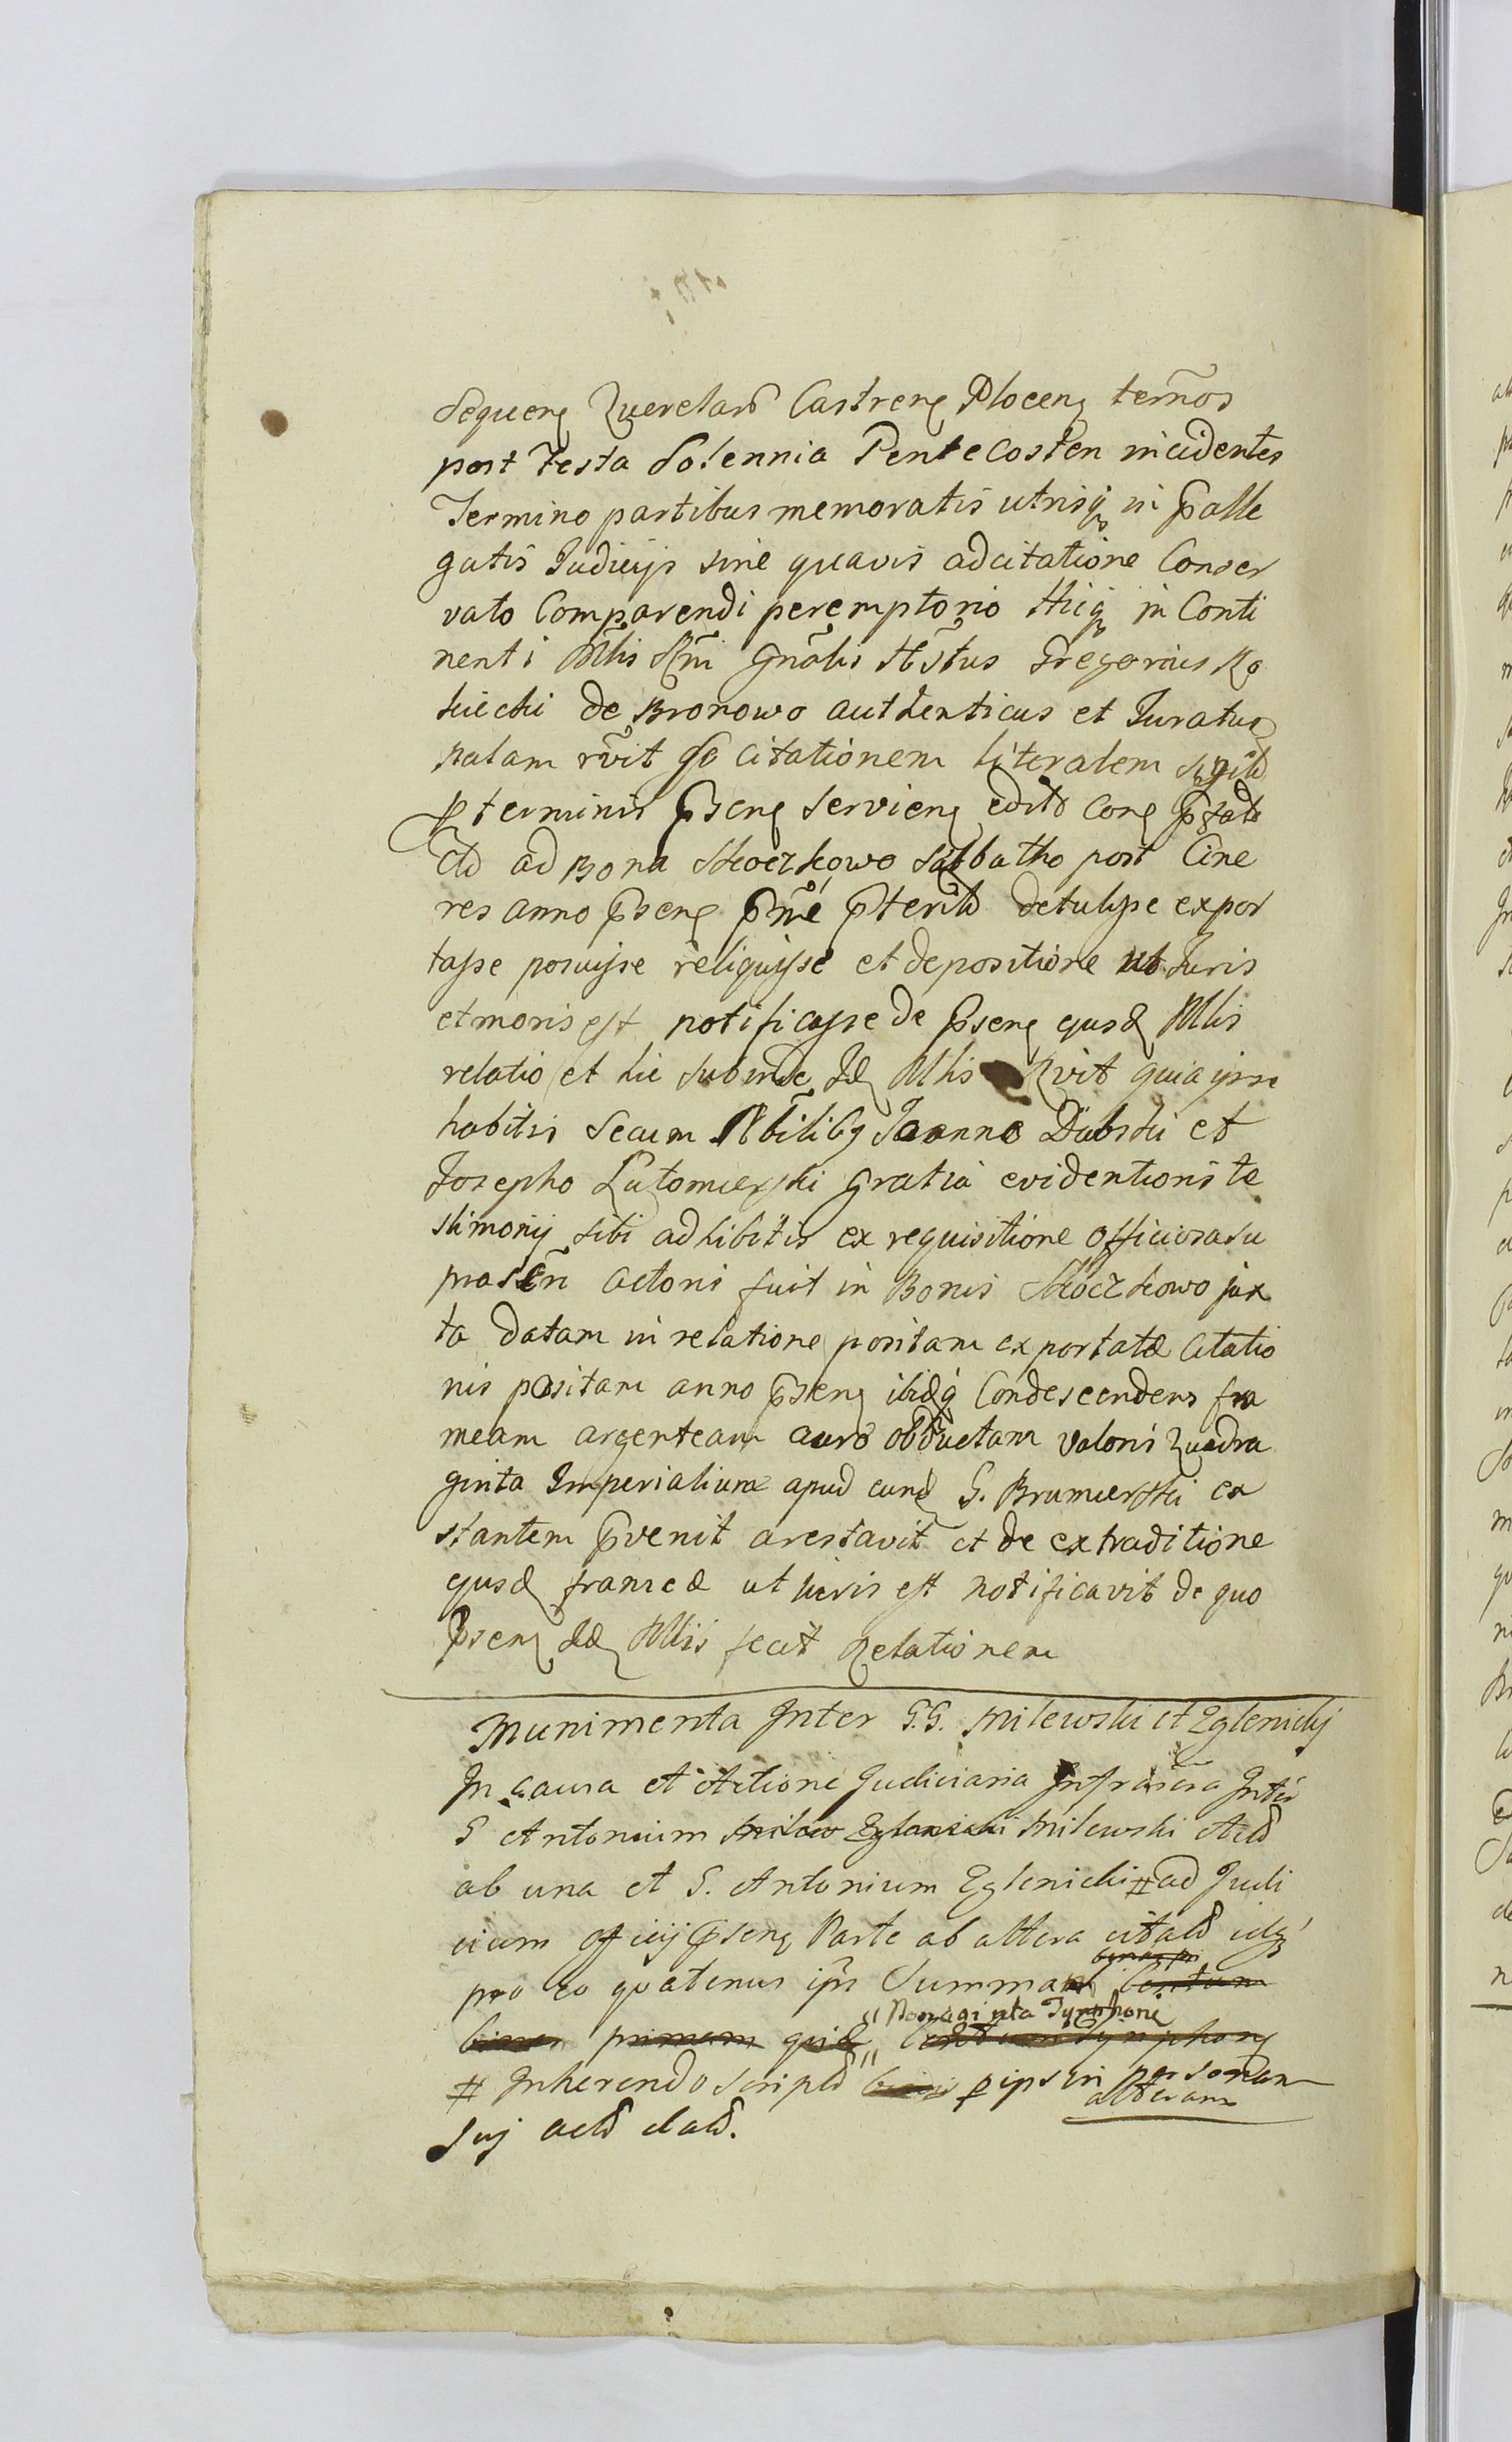 Sequenꝭ Querelarũ Castrenꝭ Plocenꝭ termõs
post Festa Solennia Pentecosten incidentes
Termino partibus memoratis utrisqꝫ in p̃alle
gatis Judicijs sine quavis adcitatione Conser
vato Comparendi peremptorio Hicqꝫ in Conti
nenti Mllis Rñi Gñalis Hñstus Gregorius Ro
kicki de Bronowo authenticus et Juratus
palam rvĩt se citationem literalem
ꝑ terminis p̃senꝭ servienꝭ edită Conꝭ
ad Bona Skoczkowo Sabbatho post Cine
res anno p̃senꝭ p̃terită detulisse expor
tasse posuisse reliquisse et depositione ut Juris
et moris est notificasse de p̃senꝭ ejusdꝭ Mllis
relatio et hic subinde Idꝭ Mllis Rvit quia ipse
habitis secum Nõbilibꝫ Joanne Dubski et
Josepho Lutomierski gratia evidentioris te
stimonij sibi adhibitis ex requisitione officiosa su
prascr̃i actoris fuit in Bonis Skoczkowo jux
ta datam in relatione positam exportatæ citatio
nis positam anno p̃senꝭ ibidqꝫ Condescendens fra
meam argenteam auro obductam valoris Quadra
ginta Imperialium apud eundꝭ G. Brumierski ex
stantem p̃venit arestavit et de extraditione
ejusdꝭ frameæ ut juris est notificavit de quo
p̃senꝭ Idꝭ Mllis fecit Relationem
Munimenta Inter G.G. Milewski et Eglenickj
In Causa et Actione Judiciaria Infrascr̃a Inter
G Antonium Milew Eglenicki Milewski Actõ
ab una et G. Antonium Eglenicki # ad Judi
cium officij p̃senꝭ Parte ab altera citatõ idqꝫ
pro eo quatenus ip̃s Summam Centum
binas primam quidꝭ " Nonaginta Tynphonꝭ Centum Tynphonꝭ
# Inherendo scriptõ ꝑ ipsũ personam
alteram
suj actõ datõ.